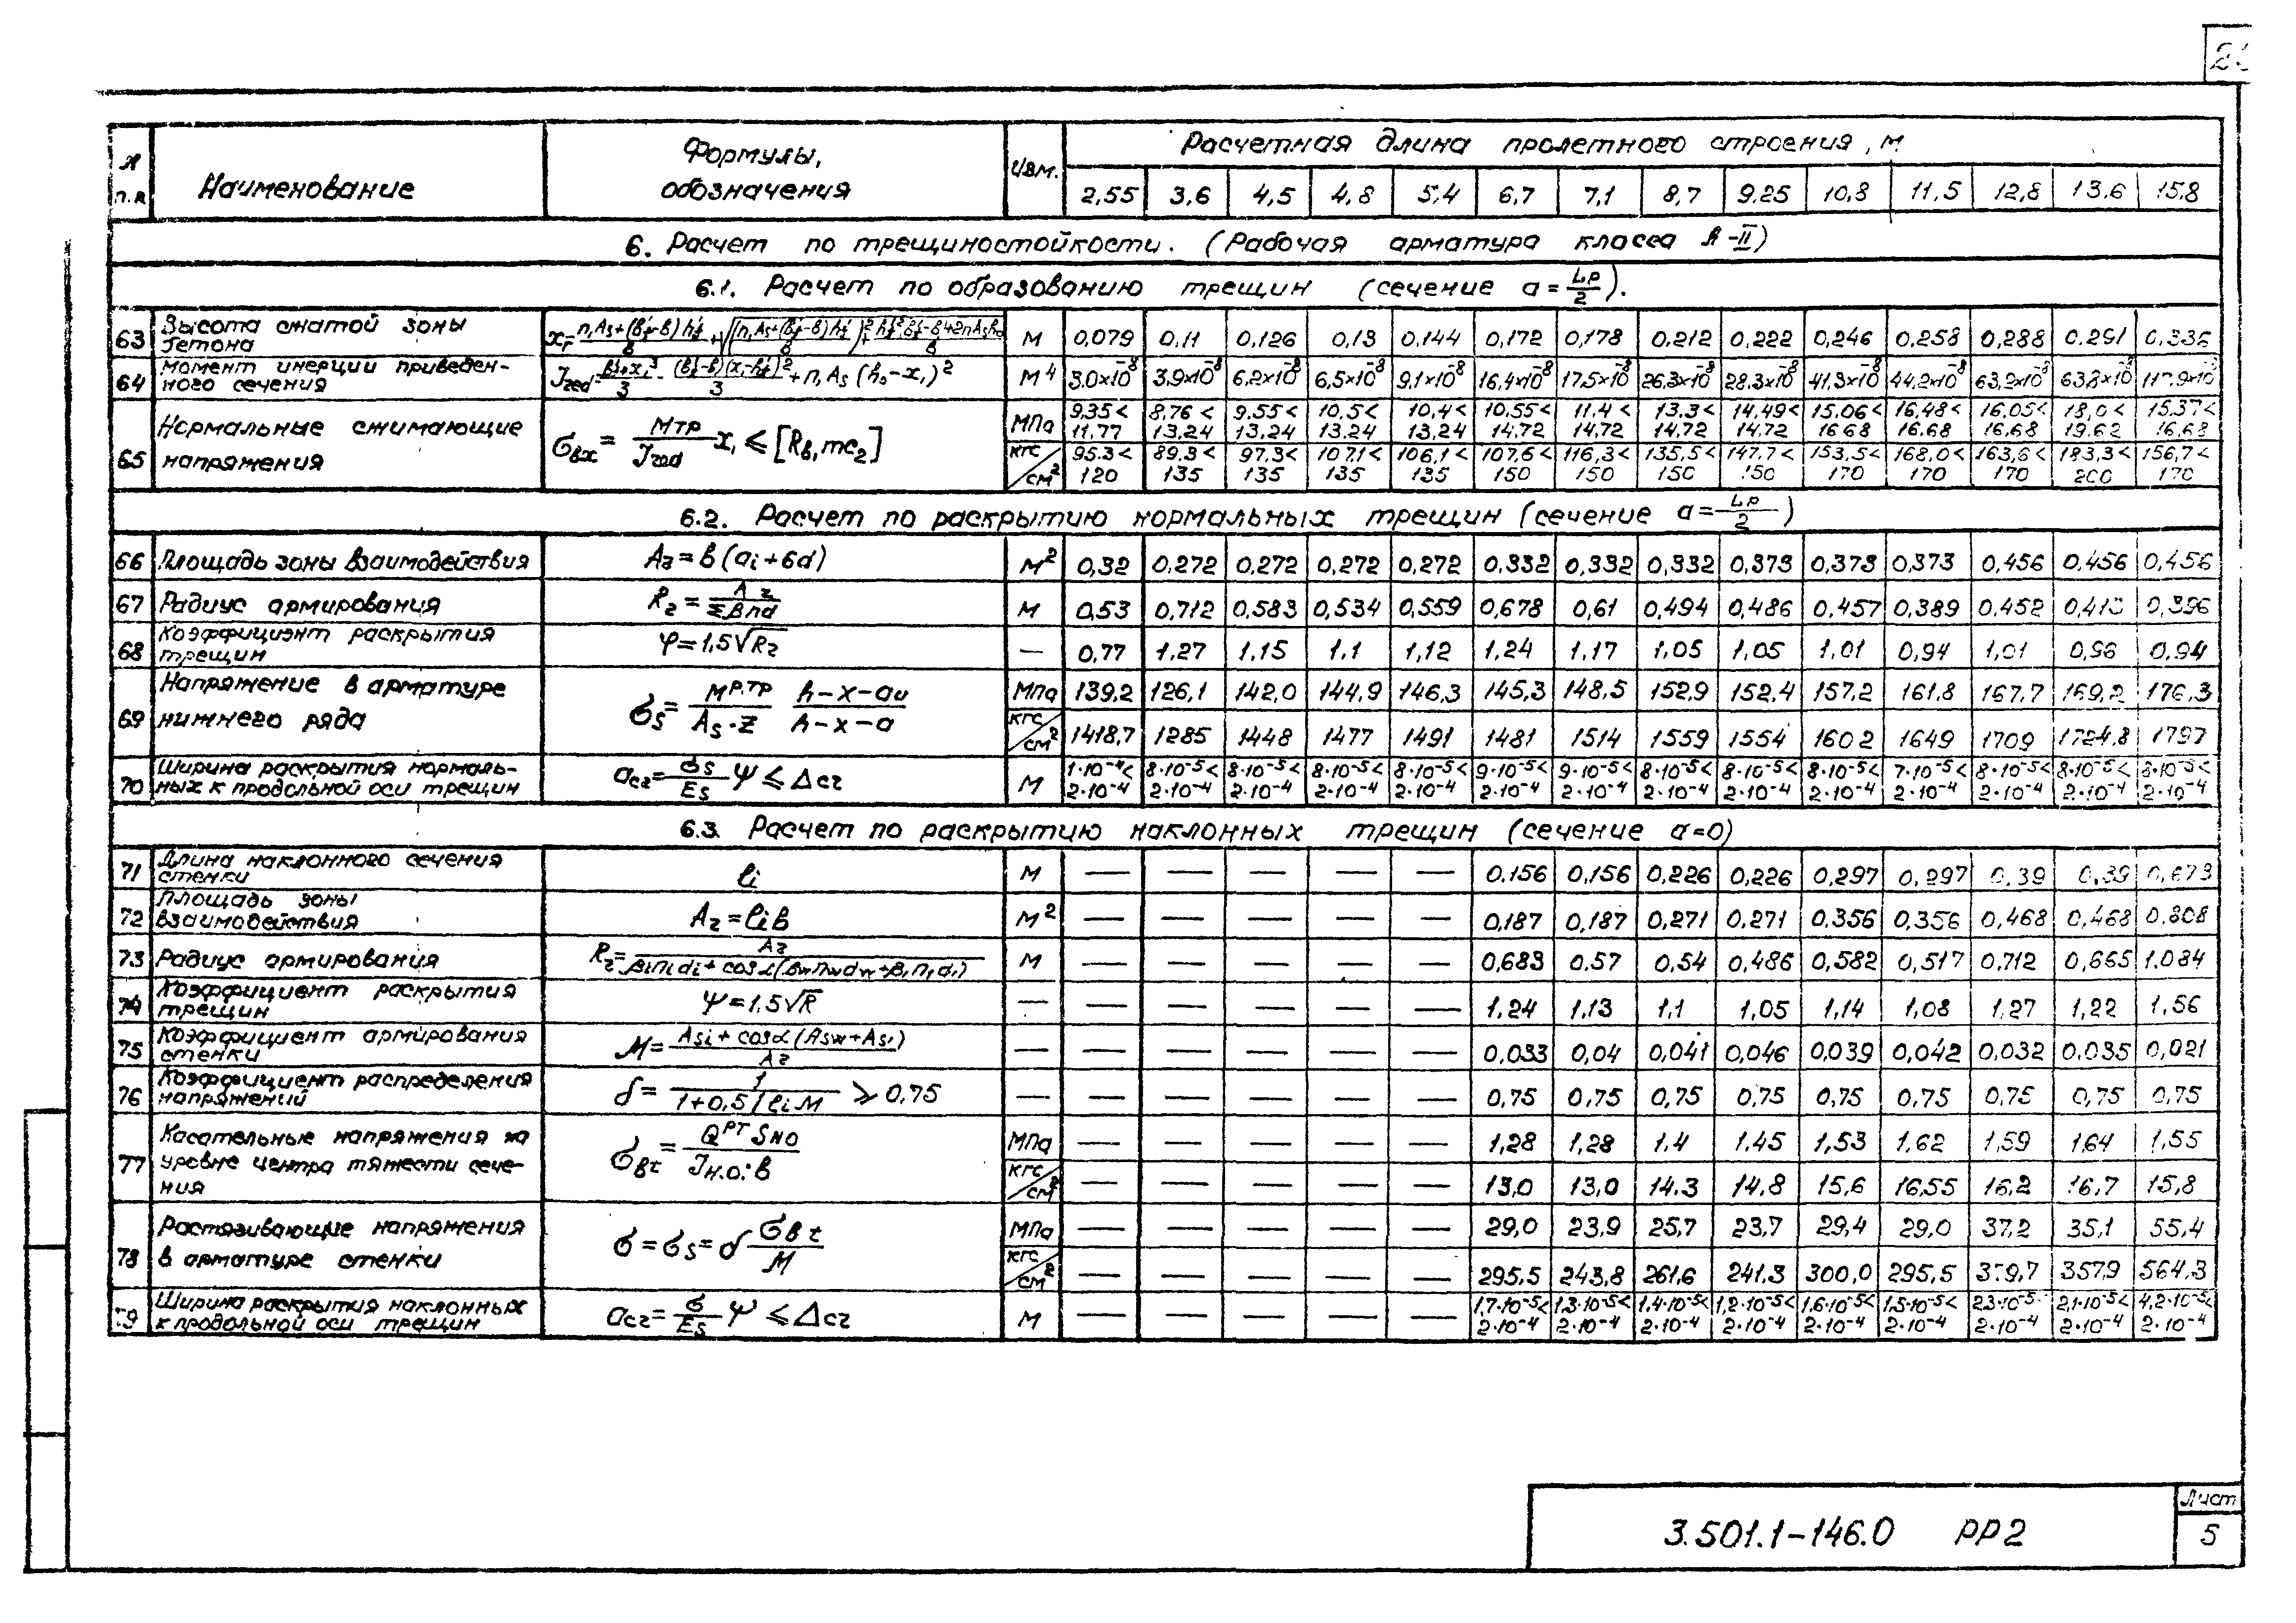 N п.п. | Наименование | Формулы, обозначения | Изм. | Расчетная длина пролетного строения, м
2,55 | 3,6 | 4,5 | 4,8 | 5,4 | 6,7 | 7,1 | 8,7 | 9,25 | 10,8 | 11,5 | 12,8 | 13,6 | 15,8
6. Расчет по трещиностойкости. (Рабочая арматура класса А-II)
6.1. Расчет по образованию трещин (сечение a = Lp/2).
63 | Высота сжатой зоны бетона | м | 0,079 | 0,11 | 0,126 | 0,13 | 0,144 | 0,172 | 0,178 | 0,212 | 0,222 | 0,246 | 0,258 | 0,288 | 0,291 | 0,336
64 | Момент инерции приведенного сечения | м⁴ | 3,0×10⁻⁸ | 3,9×10⁻⁸ | 6,2×10⁻⁸ | 6,5×10⁻⁸ | 9,1×10⁻⁸ | 16,4×10⁻⁸ | 17,5×10⁻⁸ | 26,3×10⁻⁸ | 28,3×10⁻⁸ | 41,3×10⁻⁸ | 44,2×10⁻⁸ | 63,2×10⁻⁸ | 63,8×10⁻⁸
65 | Нормальные сжимающие напряжения | σвx = Mтр/Jred x₁ ≤ [Rв,mc₂] | МПа | 9,35< 11,77 | 8,76< 13,24 | 9,55< 13,24 | 10,5< 13,24 | 10,4< 13,24 | 10,55< 14,72 | 11,4< 14,72 | 13,3< 14,72 | 14,49< 14,72 | 15,06< 16,68 | 16,48< 16,68 | 16,05< 16,68 | 18,0< 19,62 | 15,37< 16,68
кгс/см² | 95,3< 120 | 89,3< 135 | 97,3< 135 | 107,1< 135 | 106,1< 135 | 107,6< 150 | 116,3< 150 | 135,5< 150 | 147,7< 150 | 153,5< 170 | 168,0< 170 | 163,6< 170 | 183,3< 200 | 156,7< 170
6.2. Расчет по раскрытию нормальных трещин (сечение a = Lp/2)
66 | Площадь зоны взаимодействия | Aг = в(ai + 6d) | м² | 0,32 | 0,272 | 0,272 | 0,272 | 0,272 | 0,332 | 0,332 | 0,332 | 0,373 | 0,373 | 0,373 | 0,456 | 0,456 | 0,456
67 | Радиус армирования | Rг = Aг/Σβnd | м | 0,53 | 0,712 | 0,583 | 0,534 | 0,559 | 0,678 | 0,61 | 0,494 | 0,486 | 0,457 | 0,389 | 0,452 | 0,396
68 | Коэффициэнт раскрытия трещин | φ = 1,5√Rг | — | 0,77 | 1,27 | 1,15 | 1,1 | 1,12 | 1,24 | 1,17 | 1,05 | 1,05 | 1,01 | 0,94 | 1,01 | 0,96 | 0,94
69 | Напряжение в арматуре нижнего ряда | σs = Mр.тр/(As·z) (h-x-au)/(h-x-a) | МПа | 139,2 | 126,1 | 142,0 | 144,9 | 146,3 | 145,3 | 148,5 | 152,9 | 152,4 | 157,2 | 161,8 | 167,7 | 169,2 | 176,3
кгс/см² | 1418,7 | 1285 | 1448 | 1477 | 1491 | 1481 | 1514 | 1559 | 1554 | 1602 | 1649 | 1709 | 1724,8 | 1797
70 | Ширина раскрытия нормальных к продольной оси трещин | acг = σs/Es ψ ≤ Δcг | м | 1·10⁻⁴< 2·10⁻⁴ | 8·10⁻⁵< 2·10⁻⁴ | 8·10⁻⁵< 2·10⁻⁴ | 8·10⁻⁵< 2·10⁻⁴ | 8·10⁻⁵< 2·10⁻⁴ | 9·10⁻⁵< 2·10⁻⁴ | 9·10⁻⁵< 2·10⁻⁴ | 8·10⁻⁵< 2·10⁻⁴ | 8·10⁻⁵< 2·10⁻⁴ | 8·10⁻⁵< 2·10⁻⁴ | 7·10⁻⁵< 2·10⁻⁴ | 8·10⁻⁵< 2·10⁻⁴ | 8·10⁻⁵< 2·10⁻⁴ | 8·10⁻⁵< 2·10⁻⁴
6.3. Расчет по раскрытию наклонных трещин (сечение a=0)
71 | Длина наклонного сечения стенки | li | м | — | — | — | — | — | 0,156 | 0,156 | 0,226 | 0,226 | 0,297 | 0,297 | 0,39 | 0,39 | 0,673
72 | Площадь зоны взаимодействия | Aг = liв | м² | — | — | — | — | — | 0,187 | 0,187 | 0,271 | 0,271 | 0,356 | 0,356 | 0,468 | 0,468 | 0,808
73 | Радиус армирования | Rг = Aг/(βi ni di + cosα(βw nw dw + β₁ n₁ d₁)) | м | — | — | — | — | — | 0,683 | 0,57 | 0,54 | 0,486 | 0,582 | 0,517 | 0,712 | 0,665 | 1,084
74 | Коэффициент раскрытия трещин | ψ = 1,5√R | — | — | — | — | — | — | 1,24 | 1,13 | 1,1 | 1,05 | 1,14 | 1,08 | 1,27 | 1,22 | 1,56
75 | Коэффициент армирования стенки | M = (Asi + cosα(Asw + As₁))/Aг | — | — | — | — | — | — | 0,033 | 0,04 | 0,041 | 0,046 | 0,039 | 0,042 | 0,032 | 0,035 | 0,021
76 | Коэффициент распределения напряжений | δ = 1/(1+0,5/liM) ≥ 0,75 | — | — | — | — | — | — | 0,75 | 0,75 | 0,75 | 0,75 | 0,75 | 0,75 | 0,75 | 0,75 | 0,75
77 | Касательные напряжения на уровне центра тяжести сечения | σвt = QРТ Sно/(Jн.о.·в) | МПа | — | — | — | — | — | 1,28 | 1,28 | 1,4 | 1,45 | 1,53 | 1,62 | 1,59 | 1,64 | 1,55
кгс/см² | — | — | — | — | — | 13,0 | 13,0 | 14,3 | 14,8 | 15,6 | 16,55 | 16,2 | 16,7 | 15,8
78 | Растягивающие напряжения в арматуре стенки | σ = σs = δ σвt/M | МПа | — | — | — | — | — | 29,0 | 23,9 | 25,7 | 23,7 | 29,4 | 29,0 | 37,2 | 35,1 | 55,4
кгс/см² | — | — | — | — | — | 295,5 | 243,8 | 261,6 | 241,3 | 300,0 | 295,5 | 357,9 | 564,3
79 | Ширина раскрытия наклонных к продольной оси трещин | acг = σ/Es ψ ≤ Δcг | м | — | — | — | — | — | 1,7·10⁻⁵< 2·10⁻⁴ | 1,3·10⁻⁵< 2·10⁻⁴ | 1,4·10⁻⁵< 2·10⁻⁴ | 1,2·10⁻⁵< 2·10⁻⁴ | 1,6·10⁻⁵< 2·10⁻⁴ | 1,5·10⁻⁵< 2·10⁻⁴ | 2,3·10⁻⁵< 2·10⁻⁴ | 2,1·10⁻⁵< 2·10⁻⁴ | 4,2·10⁻⁵< 2·10⁻⁴
3.501.1-146.0 РР2
Лист
5